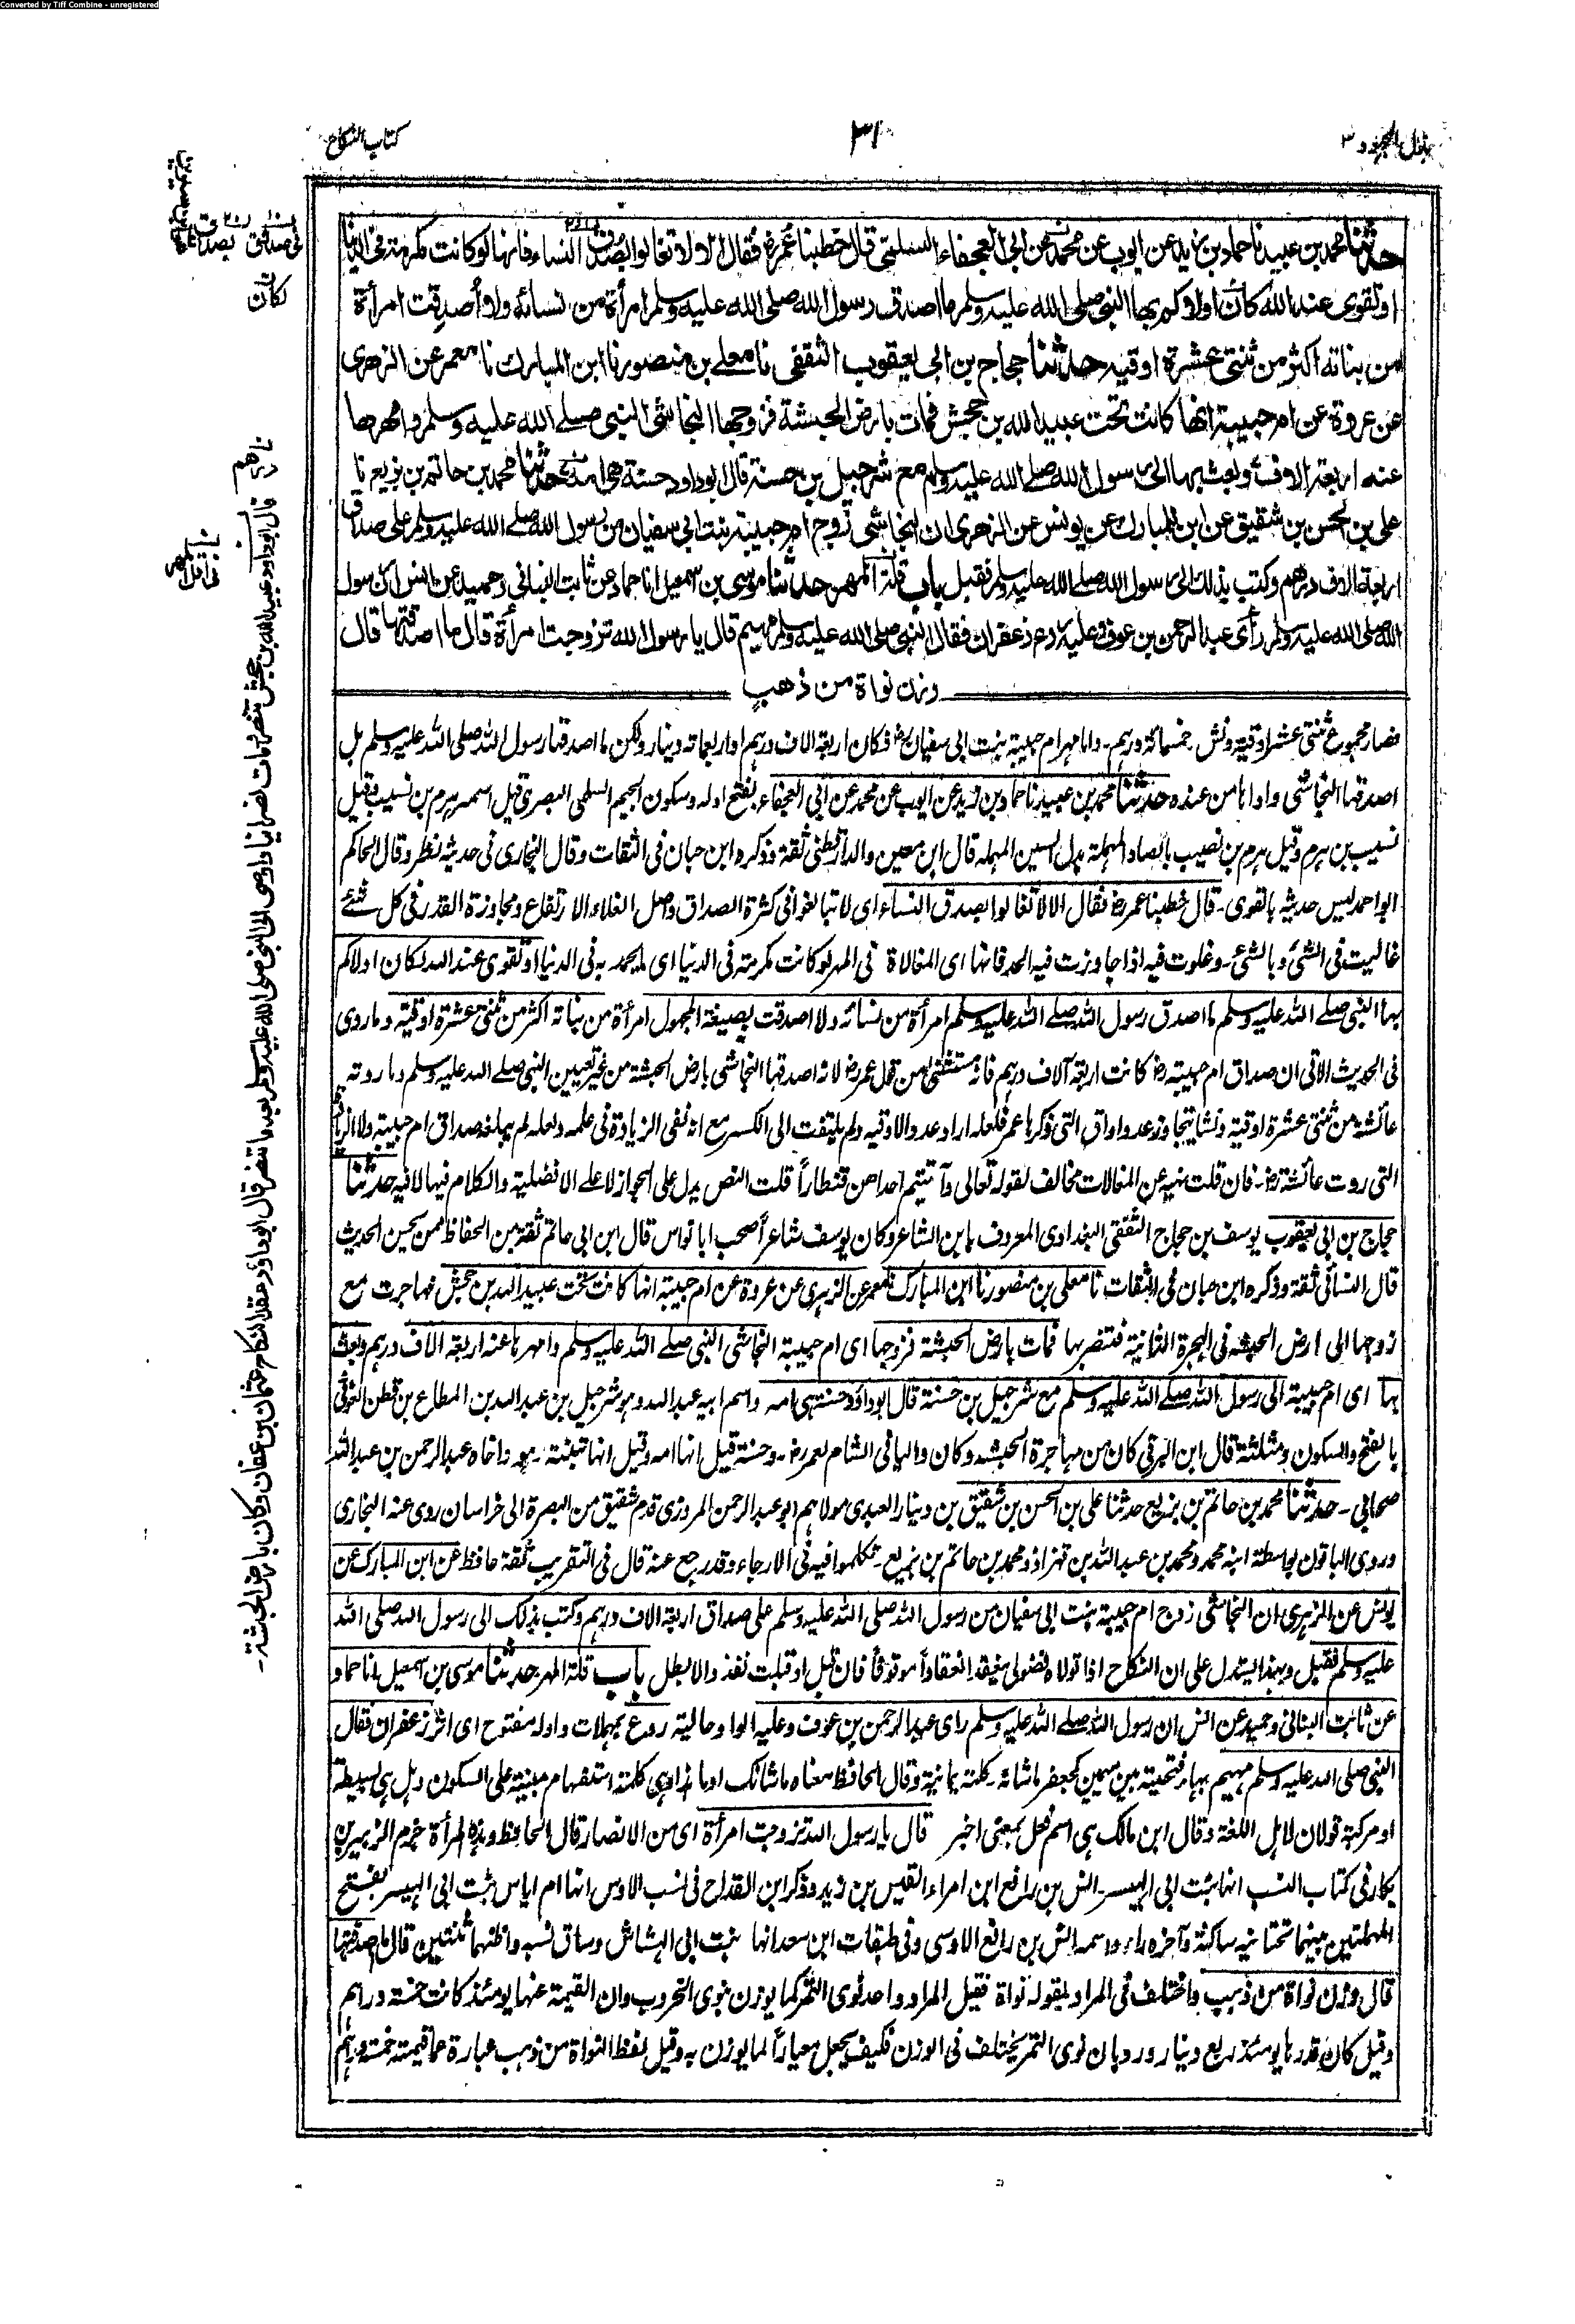 Converted by Tiff Combine - unregistered
بذل المجهود ٣
٣١
كتاب النكاح
حدثنا محمد بن عبيد نا حماد بن زيد عن ايوب عن محمد عن ابى العجفاء السلمى قال خطبنا عمر رض فقال الا لا تغالوا بصدق النساء فانها لو كانت مكرمة فى الدنيا
او تقوى عند الله كان اولاكم بها النبى صلى الله عليه وسلم ما اصدق رسول الله صلى الله عليه وسلم امرأة من نسائه ولا أصدقت امرأة
من بناته اكثر من ثنتى عشرة اوقية حدثنا حجاج بن ابى يعقوب الثقفى نا معلى بن منصور نا ابن المبارك نا معمر عن الزهرى
عن عروة عن ام حبيبة انها كانت تحت عبيد الله بن جحش فمات بارض الحبشة فزوجها النجاشى النبى صلے الله عليه وسلم وامهرها
عنه اربعة الاف وبعث بها الى رسول الله صلے الله عليه وسلم مع شرحبيل بن حسنة قال ابو داود حسنة هى امه حدثنا محمد بن حاتم بن بزيع نا
على بن الحسن بن شقيق عن ابن المبارك عن يونس عن الزهرى ان النجاشى زوج ام حبيبة بنت ابى سفيان من رسول الله صلے الله عليه وسلم على صداق
اربعة الاف درهم وكتب بذلك الى رسول الله صلے الله عليه وسلم فقبل باب قلة المهر حدثنا موسى بن اسمعيل انا حماد عن ثابت البنانى وحميد عن انس ان رسول
الله صلى الله عليه وسلم رأى عبد الرحمن بن عوف وعليه ردع زعفران فقال النبى صلى الله عليه وسلم مهيم قال يا رسول الله تزوجت امرأة قال ما اصدقتها قال
وزن نواة من ذهب
فصار مجموع ثنتى عشر اوقية ونش خمسمائة درهم۔ واما مهر ام حبيبة بنت ابى سفيان رض فكان اربعة الاف درهم او اربعمائة دينار ولكن ما اصدقها رسول الله صلى الله عليه وسلم بل
اصدقها النجاشى وادا با من عنده حدثنا محمد بن عبيد نا حماد بن زيد عن ايوب عن محمد عن ابى العجفاء بفتح اوله وسكون الجيم السلمى البصرى قيل اسمه هرم بن نسيب وقيل
نسيب بن هرم وقيل هرم بن نصيب بالصاد المهملة بدل السين المهملة قال ابن معين والدارقطنى ثقة وذكره ابن حبان فى الثقات وقال البخارى فى حديثه نظر وقال الحاكم
ابو احمد ليس حديثه بالقوى۔ قال خطبنا عمر رض فقال الا لا تغالوا بصدق النساء اى لا تبالغوا فى كثرة الصداق واصل الغلاء الارتفاع ومجاوزة القدر فى كل شئے
غاليت فى الشئ وبالشئ۔ وغلوت فيه اذا جاوزت فيه الحد فانها اى المغالاة فى المهر لو كانت مكرمة فى الدنيا اى ما يحمد به فى الدنيا او تقوى عند الله لكان اولاكم
بها النبى صلے الله عليه وسلم ما اصدق رسول الله صلے الله عليه وسلم امرأة من نسائه ولا اصدقت بصيغة المجهول امرأة من بناته اكثر من ثنتى عشرة اوقية وما روى
فى الحديث الاتى ان صداق ام حبيبة رض كانت اربعة آلاف درهم فانه مستثنى من قول عمر رض لانه اصدقها النجاشى بارض الحبشة من غير تعيين النبى صلے الله عليه وسلم وما روته
عائشة من ثنتى عشرة اوقية ونشا يتجاوز عدد اواق التى ذكرها عمر فلعله اراد عدد الاوقيه ولم يلتفت الى الكسر مع انه نفى الزيادة فى علمه ولعله لم يبلغه صداق ام حبيبة ولا الزيادة
التى روت عائشة رض۔ فان قلت نهيه عن المغالات مخالف لقوله تعالى وآتيتم احداهن قنطاراً قلت النص يدل على الجواز لا على الافضلية والكلام فيها لا فيه حدثنا
حجاج بن ابى يعقوب يوسف بن حجاج الثقفى البغدادى المعروف بابن الشاعر وكان يوسف شاعراً صحب ابا نواس قال ابن ابى حاتم ثقة من الحفاظ ممن يحسن الحديث
قال النسائى ثقة وذكره ابن حبان فى الثقات نا معلى بن منصور نا ابن المبارك نا معمر عن الزهرى عن عروة عن ام حبيبة انها كانت تحت عبيد الله بن جحش فهاجرت مع
زوجها الى ارض الحبشه فى الهجرة الثانية فتنصر بها فمات بارض الحبشة فزوجها اى ام حبيبة النجاشى النبى صلے الله عليه وسلم وامهرها عنه اربعة الاف درهم وبعث
بها اى ام حبيبة الى رسول الله صلے الله عليه وسلم مع شرحبيل بن حسنة قال ابو داؤد حسنة هى امه واسم ابيه عبد الله وهو شرحبيل بن عبد الله بن المطاع بن قطن الغوثى
بالفتح والسكون ومثلثة قال ابن البرقى كان من مهاجرة الحبشه وكان واليا فى الشام لعمر رض۔ وحسنة قيل انها امه وقيل انها تبنته۔ هو واخاه عبد الرحمن بن عبد الله
صحابى۔ حدثنا محمد بن حاتم بن بزيع حدثنا على بن الحسن بن شقيق بن دينار العبدى مولاهم ابو عبد الرحمن المروزى قدم شقيق من البصرة الى خراسان روى عنه البخارى
وروى الباقون بواسطة ابنه محمد ومحمد بن عبد الله بن قهزاذ ومحمد بن حاتم بن بزيع۔ تكلموا فيه فى الارجاء وقد رجع عنه قال فى التقريب ثقة حافظ عن ابن المبارك عن
يونس عن الزهرى ان النجاشى زوج ام حبيبة بنت ابى سفيان من رسول الله صلى الله عليه وسلم على صداق اربعة الاف درهم وكتب بذلك الى رسول الله صلى الله
عليه وسلم فقبل وبهذا يستدل على ان النكاح اذا تولاه فضولى ينعقد انعقاداً موقوفاً فان قبل او قبلت نفذ والا بطل باب قلة المهر حدثنا موسى بن اسمعيل انا حماد
عن ثابت البنانى وحميد عن انس ان رسول الله صلے الله عليه وسلم راى عبد الرحمن بن عوف وعليه الواو حالية ردع بمهملات واوله مفتوح اى اثر زعفران فقال
النبى صلى الله عليه وسلم مهيم بهاء فتحتية بين ميمين كجعفر ما شانه۔ كلمة يمانية وقال الحافظ معناه ما شانك او ما هذا وهى كلمة استفهام مبنية على السكون وهل هى بسيطة
او مركبة قولان لاهل اللغة وقال ابن مالك هى اسم فعل بمعنى اخبر قال يا رسول الله تزوجت امرأة اى من الانصار قال الحافظ وهذه المرأة جزم الزبير بن
بكار فى كتاب النسب انها بنت ابى الحيسر انس بن رافع ابن امراء القيس بن زيد وذكر ابن القداح فى نسب الاوس انها ام اياس بنت ابى الحيسر بفتح
المهملتين بينهما تحتانيه ساكنة وآخره راء واسمه انس بن رافع الاوسى وفى طبقات ابن سعد انها بنت ابى الهشاش وساق نسبه واظنهما ثنتين قال ما اصدقتها
قال وزن نواة من ذهب واختلف فى المراد بقوله نواة فقيل المراد واحد نوى التمر كما يوزن بنوى الخروب وان القيمة عنها يومئذ كانت خمسة دراهم
وقيل كان قدرها يومئذ ربع دينار ورد بان نوى التمر يختلف فى الوزن فكيف يجعل معياراً لما يوزن به وقيل لفظ النواة من ذهب عبارة عما قيمته خمسة دراهم
لكان
نا
درهم
قال ابو داود عبيد الله بن جحش تنصر ومات نصرانيا واوصى الى النبى صلى الله عليه وسلم بعد ما تنصر قال ابو داؤد عقد النكاح عثمان بن عفان وكان بارض الحبشة۔